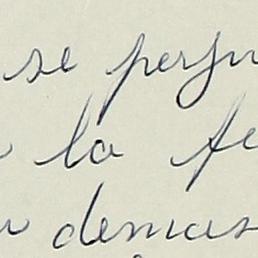 se perju
la fe
demas